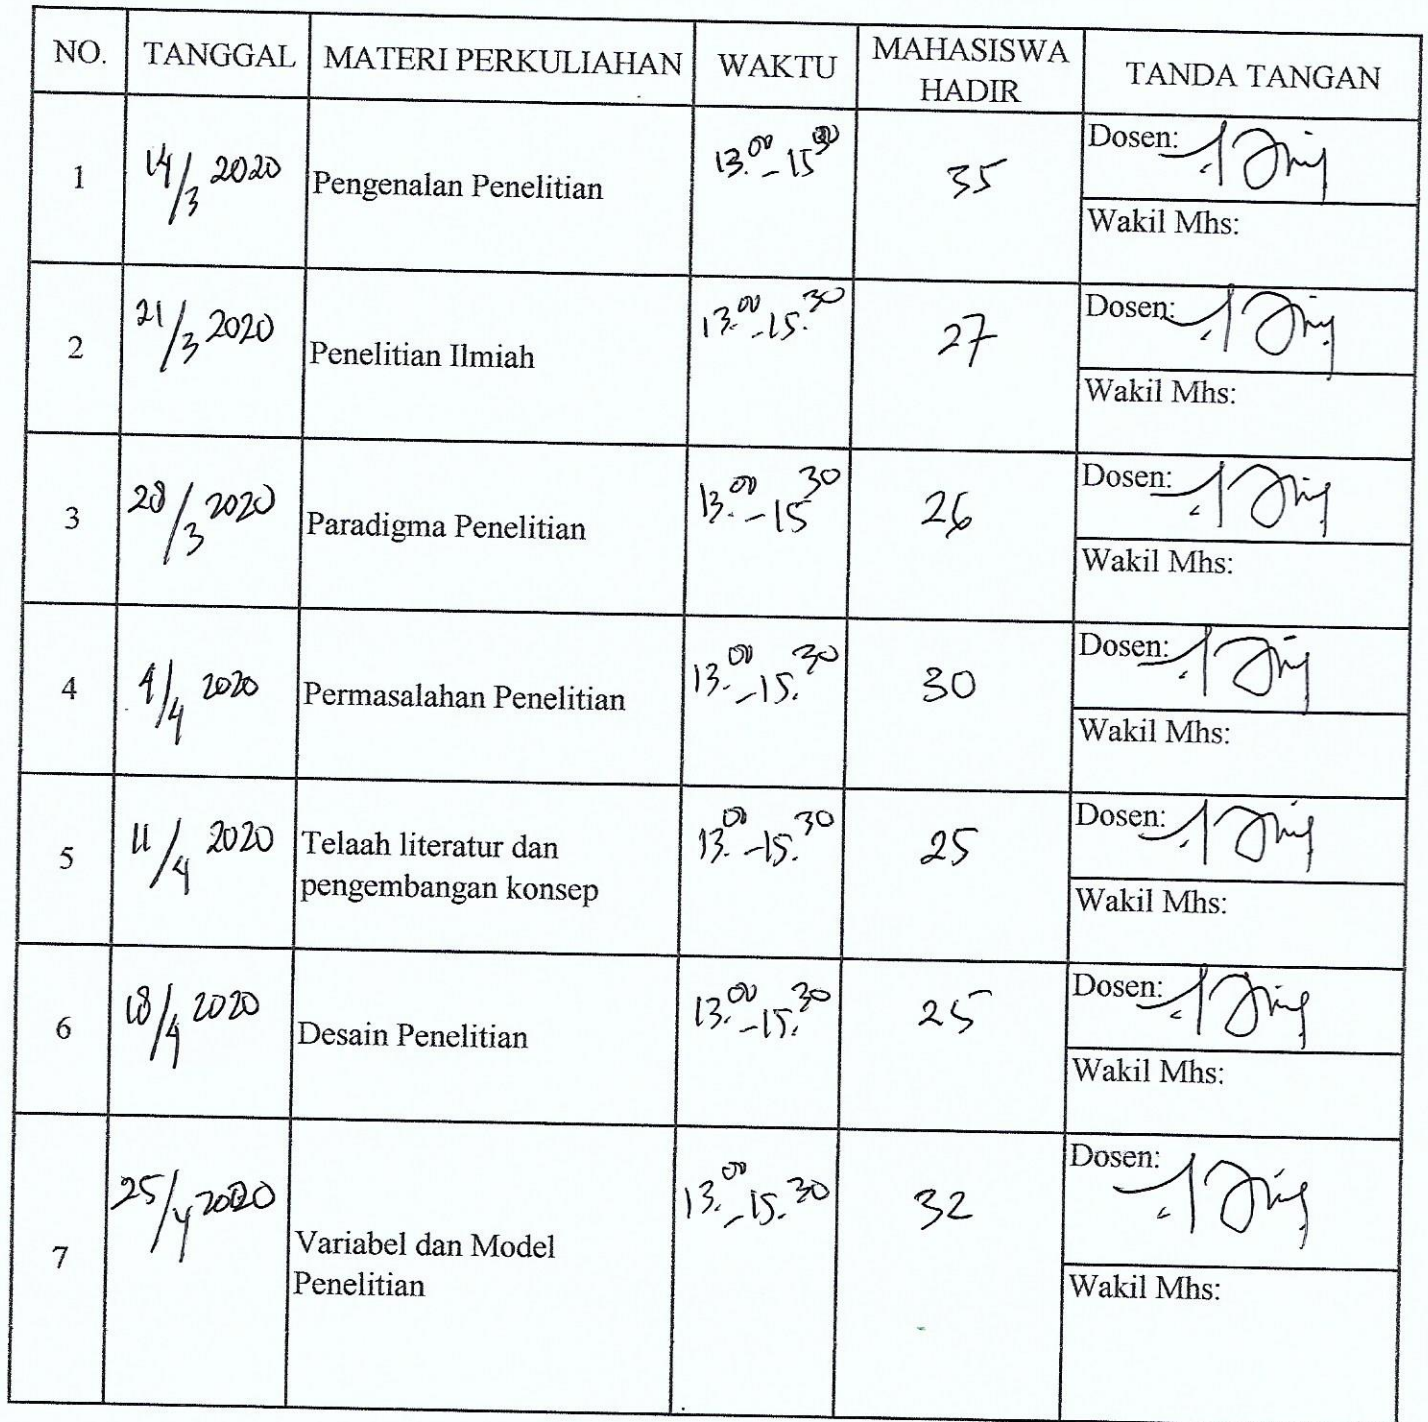 NO. TANGGAL MATERI PERKULIAHAN WAKTU MAHASISWA HADIR TANDA TANGAN
1 14/3 2020 Pengenalan Penelitian 13.00 - 15.30 35 Dosen:
Wakil Mhs:
2 21/3 2020 Penelitian Ilmiah 13.00 - 15.30 27 Dosen:
Wakil Mhs:
3 28/3 2020 Paradigma Penelitian 13.00 - 15 30 26 Dosen:
Wakil Mhs:
4 4/4 2020 Permasalahan Penelitian 13.00 - 15.30 30 Dosen:
Wakil Mhs:
5 11/4 2020 Telaah literatur dan
pengembangan konsep 13.00 - 15.30 25 Dosen:
Wakil Mhs:
6 18/4 2020 Desain Penelitian 13.00 - 15.30 25 Dosen:
Wakil Mhs:
7 25/4 2020 Variabel dan Model
Penelitian 13.00 - 15.30 32 Dosen:
Wakil Mhs: